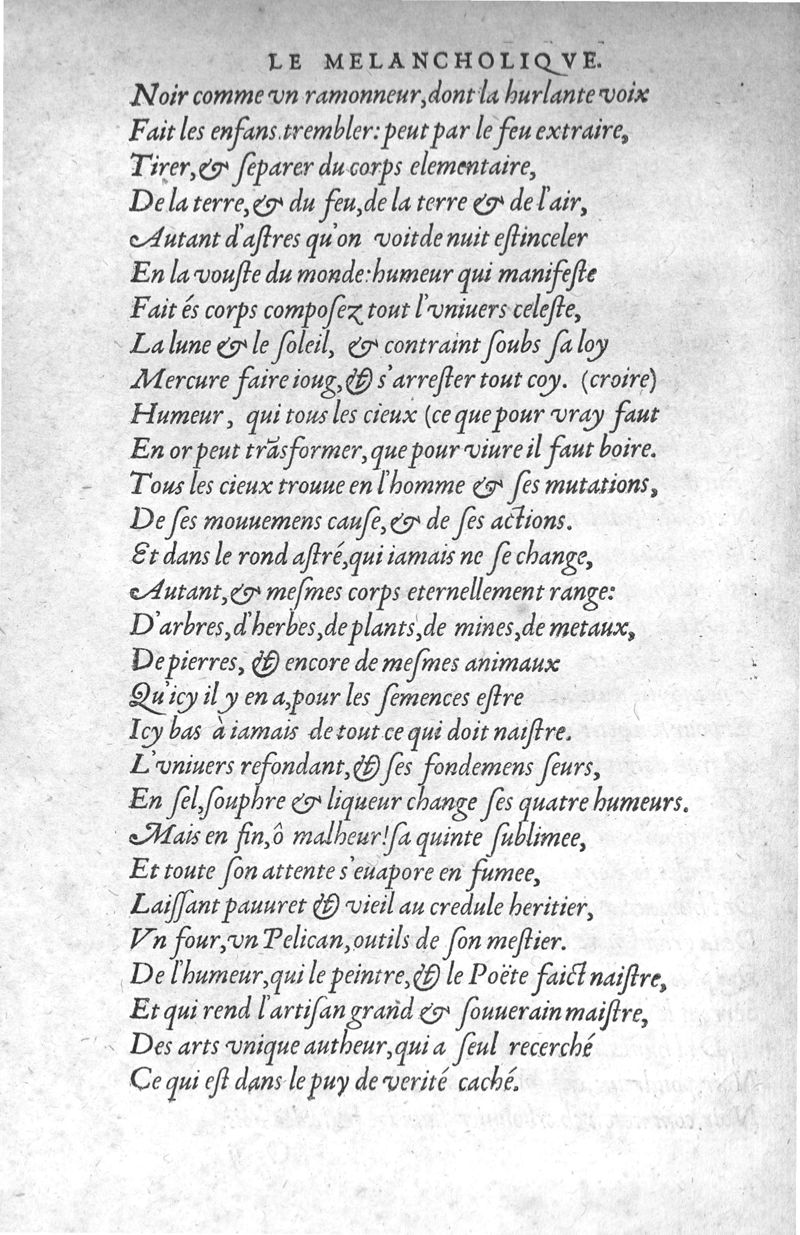 LE MELANCHOLIQVE.
Noir comme vn ramonneur, dont la hurlante voix
Fait les enfans trembler: peut par le feu extraire,
Tirer, & ſeparer du corps elementaire,
De la terre, & du feu, de la terre & de l'air,
Autant d'aſtres qu'on voit de nuit eſtinceler
En la vouſte du monde: humeur qui manifeſte
Fait és corps compoſez tout l'vniuers celeſte,
La lune & le ſoleil, & contraint ſoubs ſa loy
Mercure faire ioug, & s'arreſter tout coy. (croire)
Humeur, qui tous les cieux (ce que pour vray faut
En or peut trãsformer, que pour viure il faut boire.
Tous les cieux trouue en l'homme & ſes mutations,
De ſes mouuemens cauſe, & de ſes actions.
Et dans le rond aſtré, qui iamais ne ſe change,
Autant, & meſmes corps eternellement range:
D'arbres, d'herbes, de plants, de mines, de metaux,
De pierres, & encore de meſmes animaux
Qu'icy il y en a, pour les ſemences eſtre
Icy bas à iamais de tout ce qui doit naiſtre.
L'vniuers refondant, & ſes fondemens ſeurs,
En ſel, ſouphre & liqueur change ſes quatre humeurs.
Mais en fin, ô malheur! ſa quinte ſublimee,
Et toute ſon attente s'euapore en fumee,
Laiſſant pauuret & vieil au credule heritier,
Vn four, vn Pelican, outils de ſon meſtier.
De l'humeur, qui le peintre, & le Poëte faict naiſtre,
Et qui rend l'artiſan grand & ſouuerain maiſtre,
Des arts vnique autheur, qui a ſeul recerché
Ce qui eſt dans le puy de verité caché.